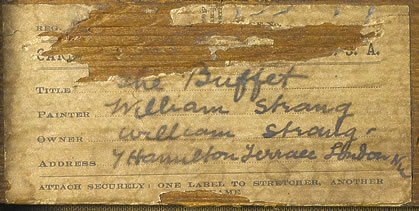 REG.
CAR S. A.
TITLE The Buffet
PAINTER William Strang
OWNER William Strang
ADDRESS 7 Hamilton Terrace London NW
ATTACH SECURELY: ONE LABEL TO STRETCHER, ANOTHER
FRAME